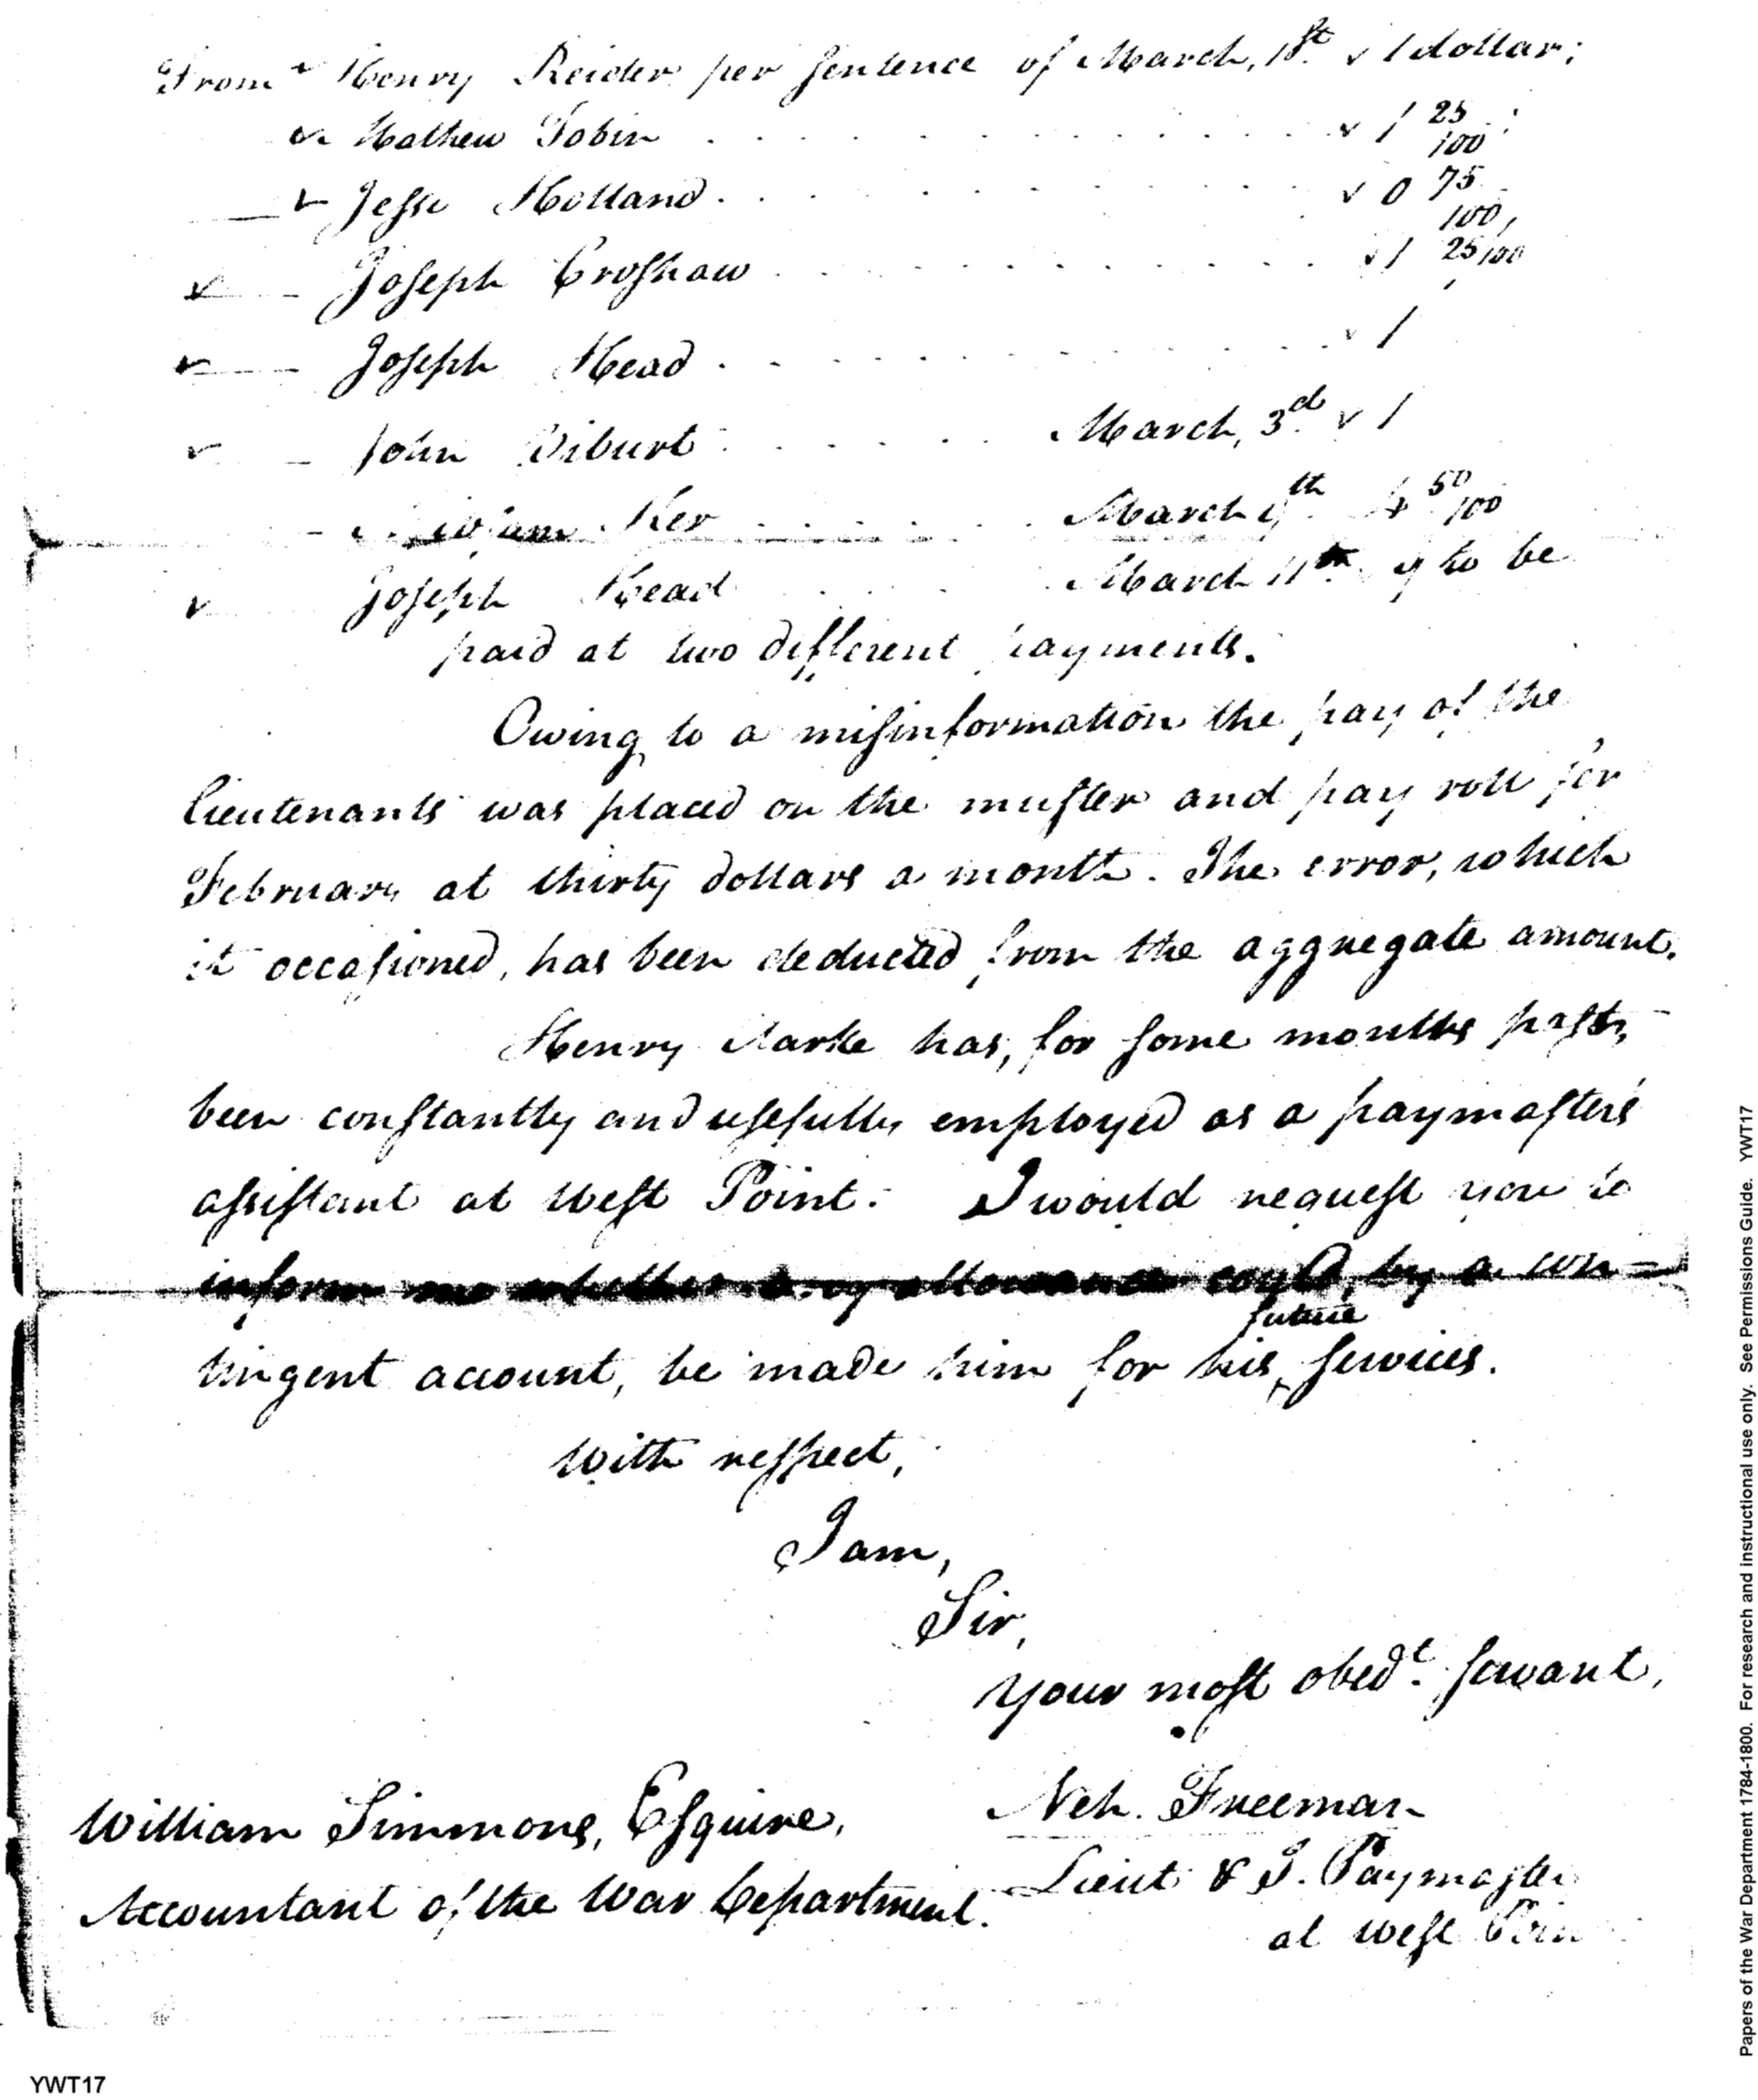 From Henry Reider per sentence of March, 1st. v 1 dollar;
Mathew Tobin . . . . . . . . . . v 1 25/100;
Jesse Holland . . . . . . . . . . v 0 75/100,
Joseph Croshaw . . . . . . . . . . v 1 25/100,
Joseph Head . . . . . . . . . . v 1
John Diburt . . . . . March, 3d. v 1
Ker . . . . . March 50/100
Joseph Head . . . March 11th to be
paid at two different payments.
Owing to a misinformation the pay of the
lieutenants was placed on the muster and pay roll for
February at thirty dollars a month. The error, which
it occasioned, has been deducted from the aggregate amount.
Henry Clarke has, for some months past,
been constantly and usefully employed as a paymaster's
assistant at West Point. I would request you to
inform me whether any allowance could, by a con-
future
tingent account, be made him for his ‸ services.
With respect,
I am,
Sir,
Your most obedt. servant,
Neh. Freeman
William Simmons, Esquire,
Lieut & Paymaster
Accountant of the War Department.
at West Poin
Papers of the War Department 1784-1800. For research and instructional use only. See Permissions Guide. YWT17
YWT17